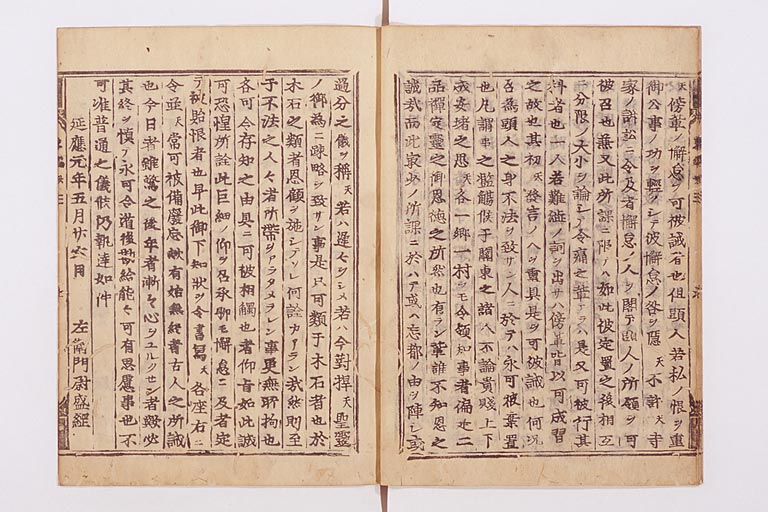 傍輩ノ懈怠ヲ可被誡者也但頭人若私ノ恨ヲ重
御公事ノ功ヲ輕シテ彼懈怠ノ咎ヲ隠天不許天寺
家ノ訴訟ニ令及者懈怠ノ人ヲ閣テ頭人ノ所領ヲ可
被召也兼又此所課ニ限テハ如此被定置之後相互
分限ノ大小ヲ論シテ令痛之輩アラハ是又可被行其
科者也一人若難澁ノ詞ヲ出サハ傍輩皆以可成習
之故也其初天發言ノヘヲ重具是ヲ可被誡也何况
召為頭人之身不法ヲ致サン人ニ於テハ永可被棄置
也凡謂事之濫觴候于關東之諸人不論貴賤上下
成安堵之思天各一郷一村ヲモ令領知事者偏ニ二
品禪定靈之御恩徳之所然也有ラン輩誰不知恩之
誠哉而此寂少ノ所課ニ於ハアヲハ忘却ノ由ヲ陳シ或
過分之儀ヲ稱天若ハ遅々セシメ若ハ令對捍天聖靈
ノ御為ニ疎略ヲ致サン事是只可類于木石者也於
木石之類者恩顧ヲ施シテソレ何詮カアラン哉然則至
于不法之人々者所帶ヲアラタメラレン事更無所拘也
各可令存知之由具ニ可被相觸也者仰旨如此誠
可恐惶所詮此巨細ノ仰ヲ召承聊モ懈怠ニ及者定
テ被貽恨者也早此御下知状ヲ令書寫天各座右ニ
令並天常可被備癈忘歟有始無終者古人之所誡
也今日者雖驚之後年者漸々心ヲユルクセン者歟必
其終ヲ慎テ永可令遂後勤給能々可有思慮事也不
可准普通之儀候仍執達如件
延應元年五月廿六日
左衛門尉盛經